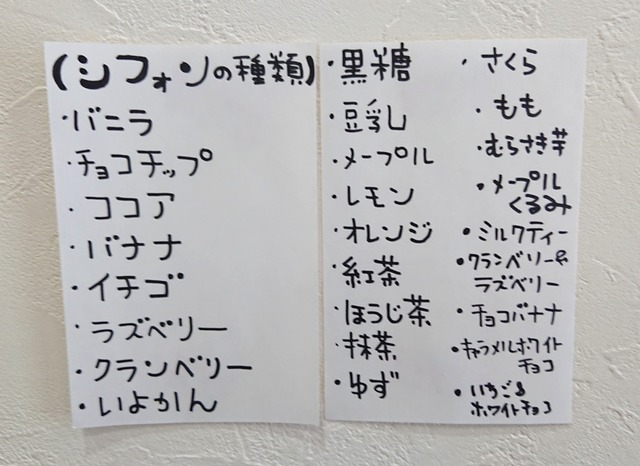 (シフォンの種類)
・バニラ
・チョコチップ
・ココア
・バナナ
・イチゴ
・ラズベリー
・クランベリー
・いよかん
・黒糖
・豆乳
・メープル
・レモン
・オレンジ
・紅茶
・ほうじ茶
・抹茶
・ゆず
・さくら
・もも
・むらさき芋
・メープル
くるみ
・ミルクティー
・クランベリー&
ラズベリー
・チョコバナナ
・キャラメルホワイト
チョコ
・いちご&
ホワイトチョコ